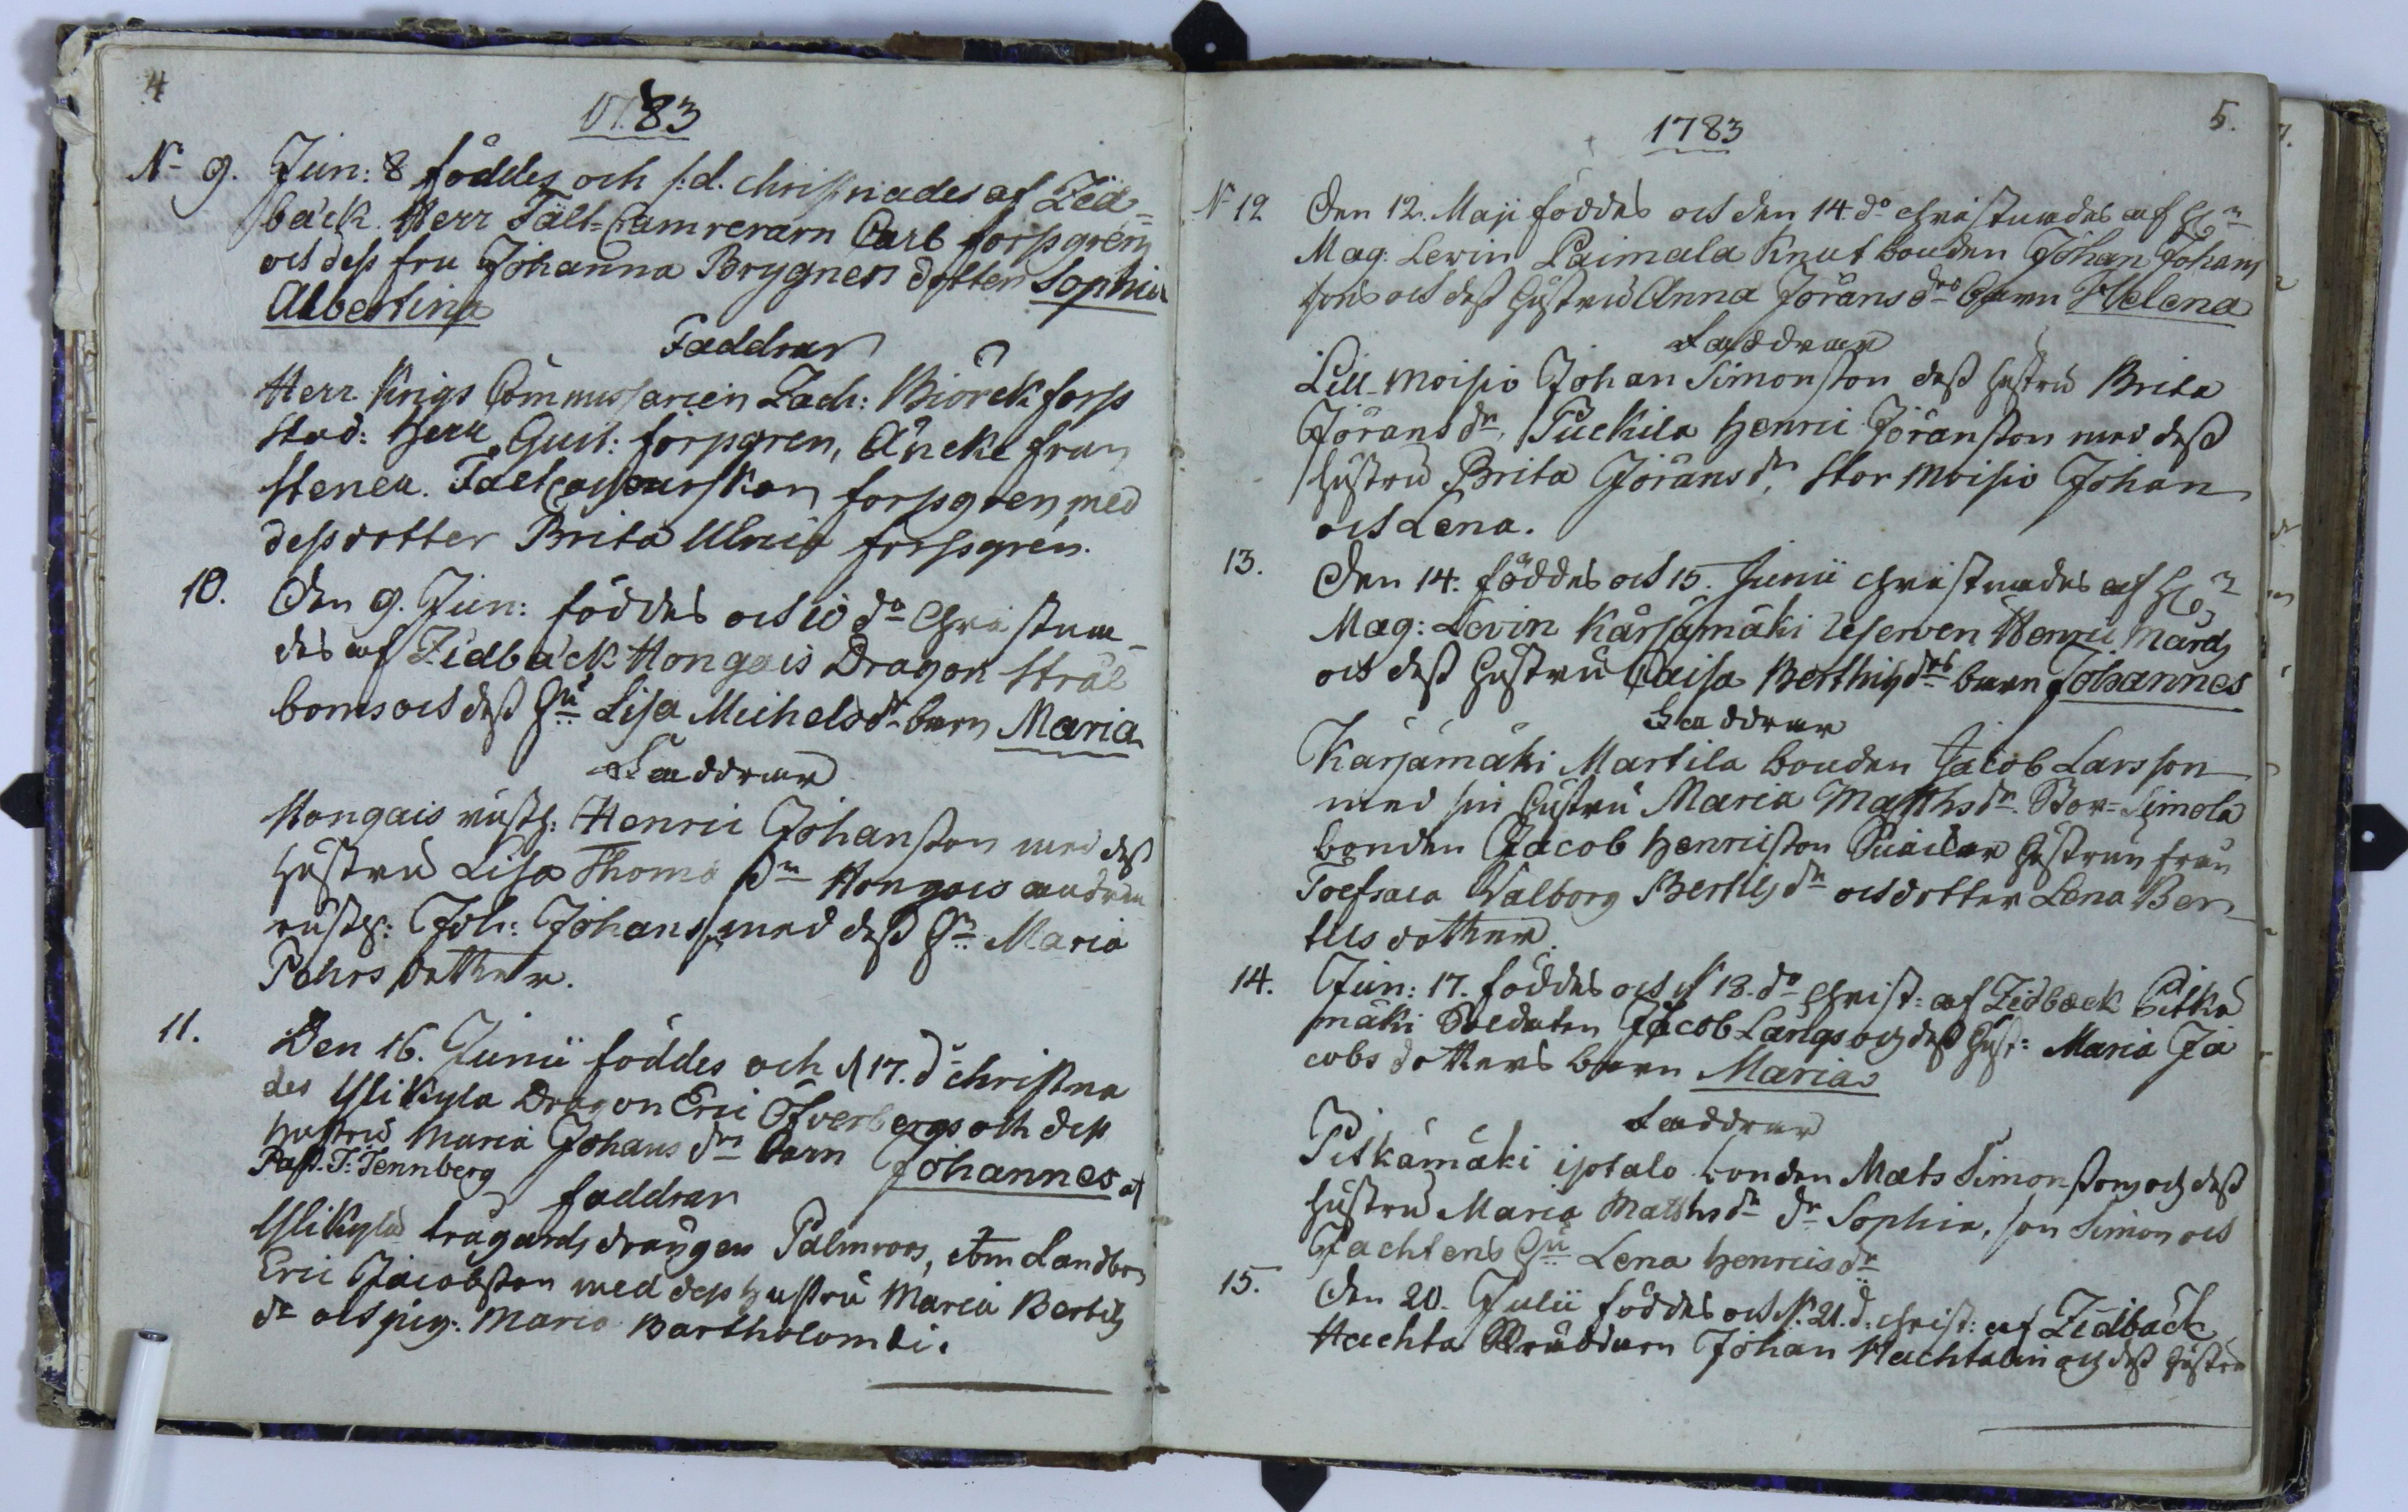 4
1783
N- 9. Jun: 8 föddes och s:d. christnades af Zid=
bäck. Herr Fält-Camrerarn Carl forssgrén
och dess fru Johanna Brygners dotter Sophia
Albertina
Faddrar
Herr Krigs Commissarien Zach: Biörck forss
Stud: Herr Gust: forssgren, Äncke frun
Helena. forssgren med
dess dotter Brita Ulrica forssgrén.
10. Den 9. Jun: föddes och 10 do Christna-
des af Zidbäck Hongais Dragon Strål
boms och dess Hu Lisa Michelsdr barn Maria
Faddrar
Hongais rusth: Henric Johansson med dess
hustru Lisa Thomædr Hongais andra
rusth: Joh: Johanss med dess Hu Maria
Pehrsdotter.
11. Den 16. Junii föddes och d 17. do christna
des Ylikyla Dragon Eric Öfverbergs och dess
hustru Maria Johansdrs barn Johannes af
Past. J: Tennberg
faddrar
Ylikyla trägårds drängen Palmroos, Landbn
Eric Jacobsson med dess hustru Maria Bertils
dr och pig: Maria Bartholomæi.
5.
1783
N 12 Den 12. Maji föddes och den 14 do christnades af Hr
Mag: Levin Paimala Knut bonden Johan Johans
sons och dess hustru Anna Jöransdrs barn Helena
Faddrar
Lill-moisio Johan Simonsson dess hustru Brita
Jöransdr, Puckila Henric Jöransson med dess
hustru Brita Jöransdr, Stor moisio Johan
och Lena.
13. Den 14. föddes och 15. Junii christnades af Hr
Mag: Levin Kärsämäki Reserven Henric Mårds
och dess hustru Caisa Berthilsdrs barn Johannes
Faddrar
Kärsämäki Martila bonden Jacob Larsson
med sin hustru Maria Matthsdr. Stor=Simola
bonden Jacob Henricsson hustrun från
Valborg Bertilsdr och dotter Lena Ber-
tils dotter.
14. Jun: 17. föddes och d 18. do Christ: af Zidbäck Pitkä
mäki Soldaten Jacob Långs och dess hust: Maria Ja
cobs dotters barn Maria
Faddrar
Pitkämäki isotalo bonden Mats Simonsson och dess
hustru Maria Matthsdr dr Sophia, son Simon och
Hu Lena Henricsdr
15. Den 20. Julii föddes och d. 21. d: christ: af Zidbäck
Hachta Johan och dess hustru